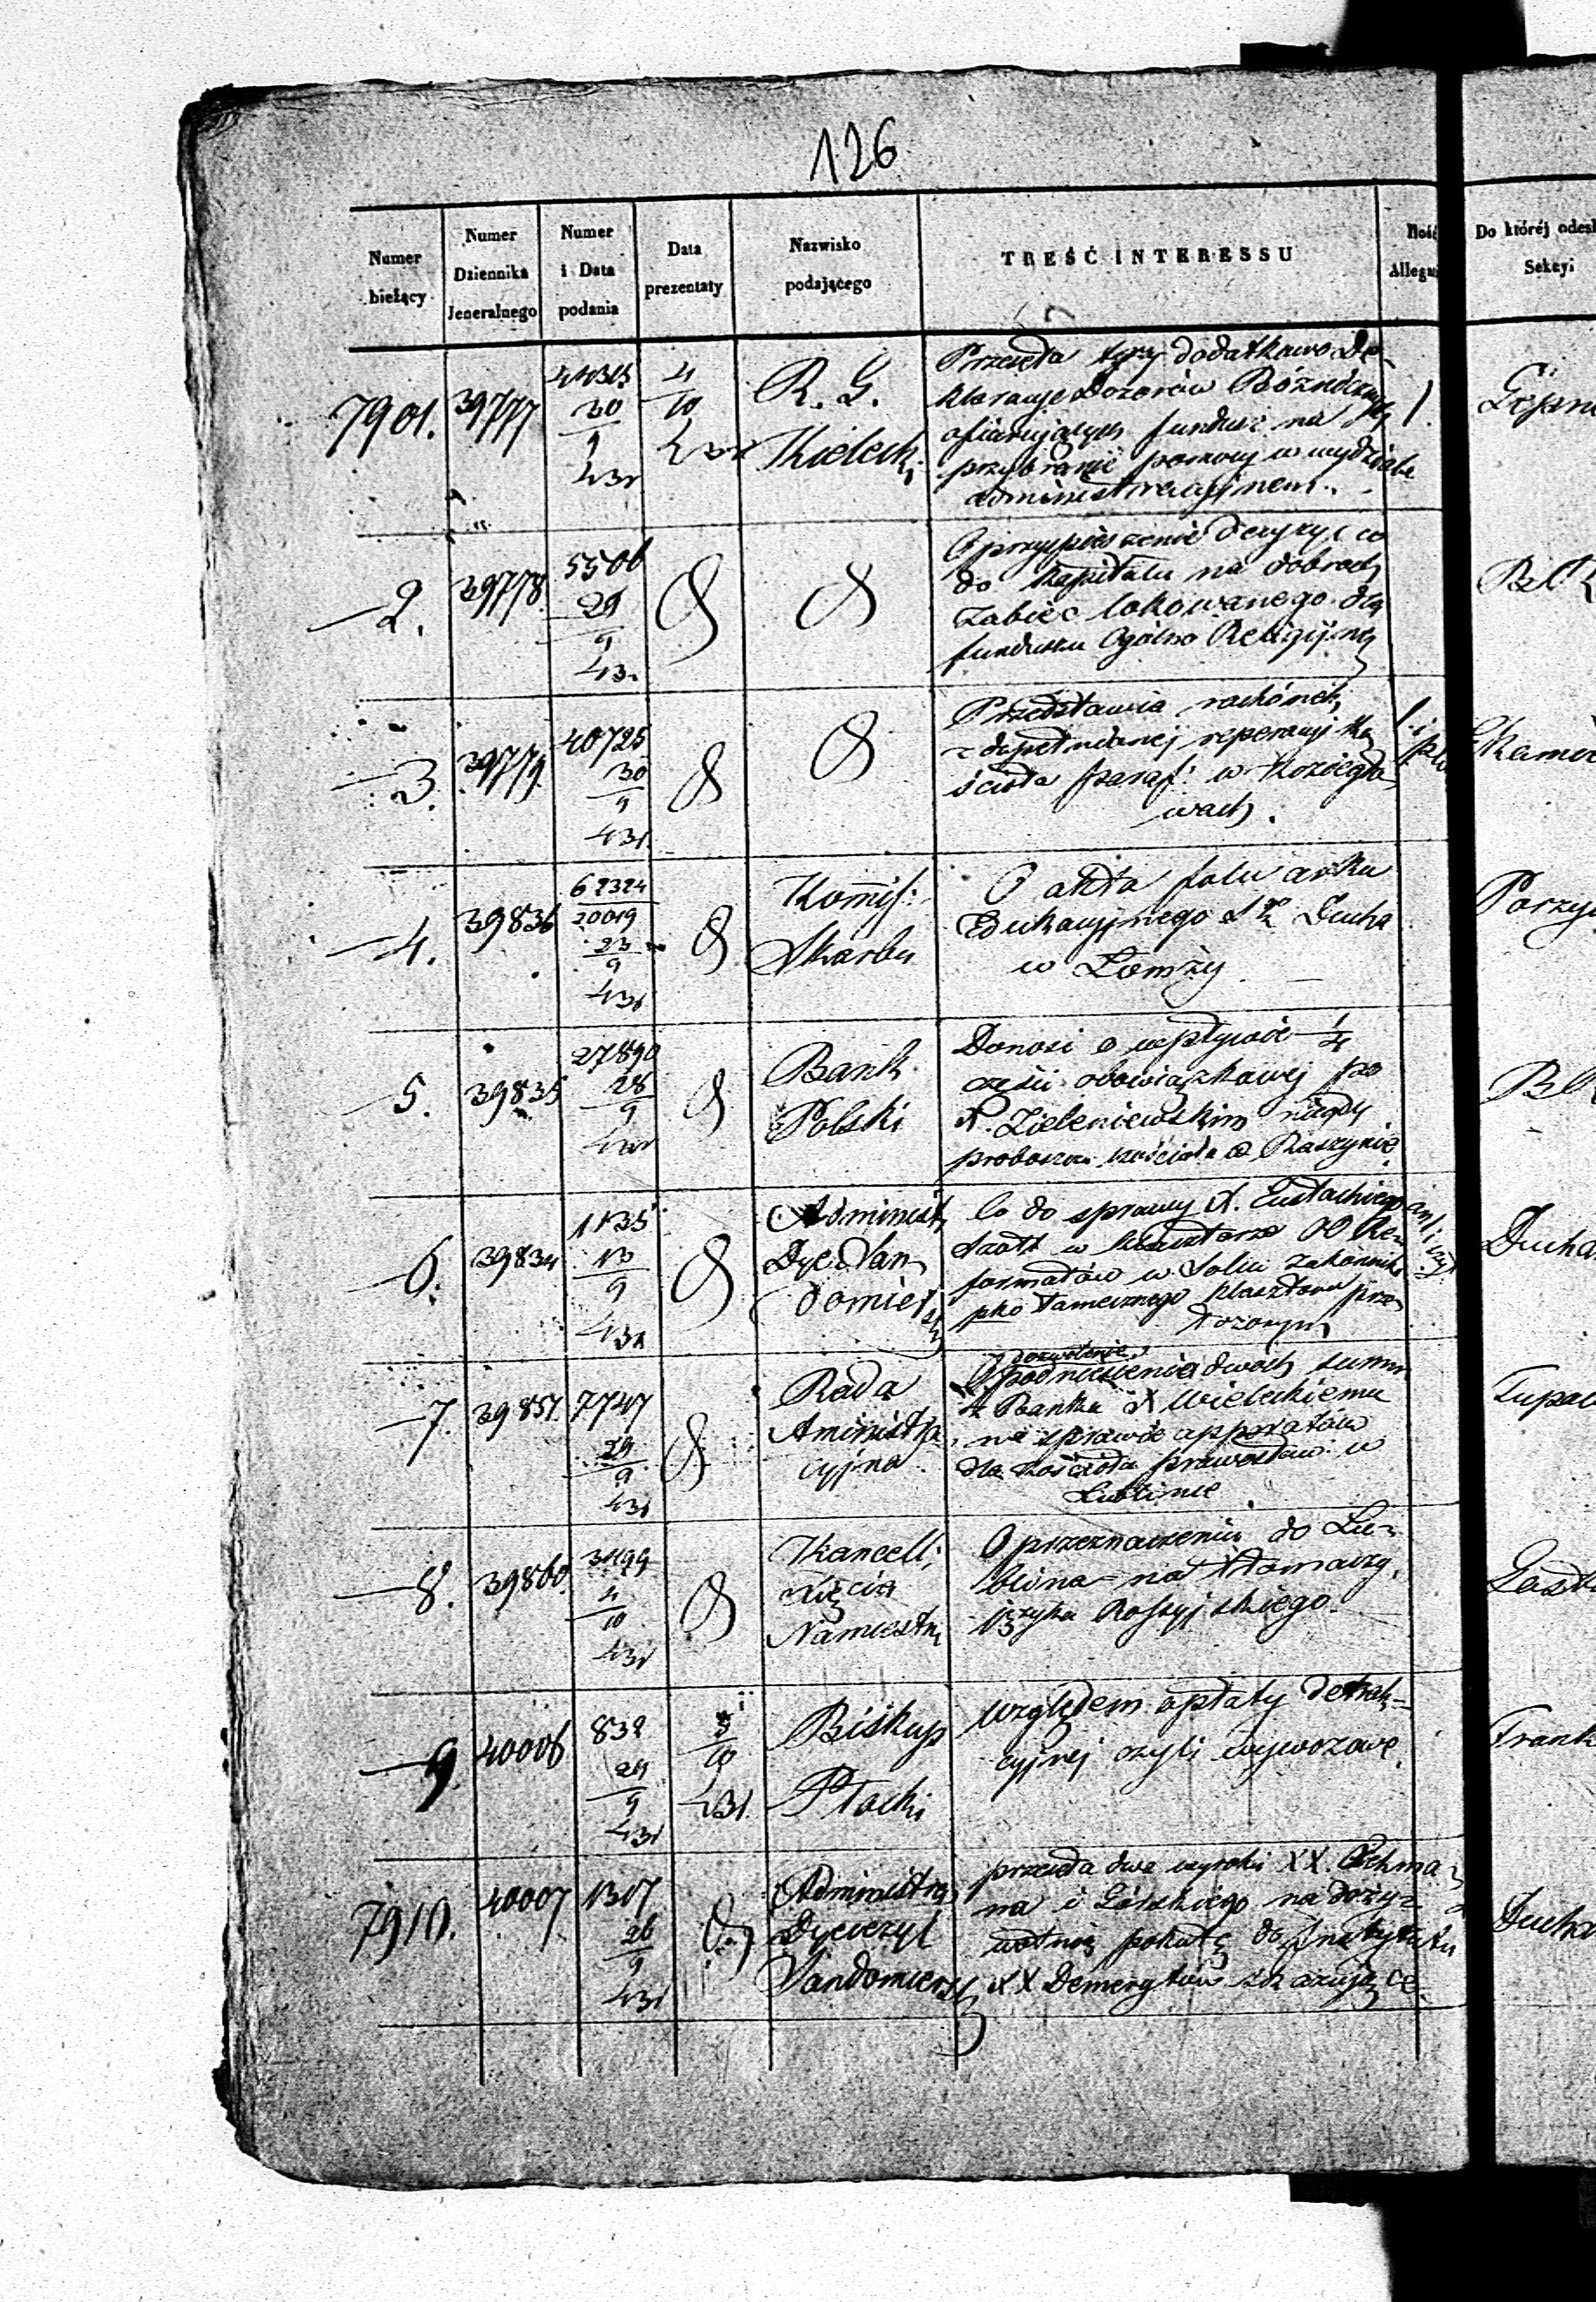 126
Numer bieżący
Numer Dziennika Jeneralnego
Numer i Data podania
Data prezentaty
Nazwisko podającego
TREŚĆ INTERESSU
Ilość Allega
Do któréj odesł
Sekcyi
7901. 39777
30
9
4
10
R. G.
Kielecki
Przesyła trzy dodatkowo De-
klaracye Dozorów Bóżniczych
ofiarujących fundusz na
przybranie pomocy w wydziale
administracyjnem.
1.
2. 39778
5506
29
9
O przyspieszenie decyzyi co
do kapitału na dobrach
Zabiec lokowanego dla
funduszu Ogólno Religijnego
3. 39779
40725
30
9
Przedstawia rachónek
z dopełnionej reperacyi Ko
ścioła paraf: w Koziegło
wach.
4. 39836
62324
20019
23
9
Kommis:
Skarbu
O akta folwarku
Edukacyjnego Sgo Ducha
w Łomży
5. 39835
27890
28
9
Bank
Polski
Donosi o wpływie 1/4
części obowiązkowej po
X. Zieleniewskim niegdy
proboszczu kościoła w Raszynie
6. 39834
1135
13
9
Administ
Dyec San
domiers
Co do sprawy X. Eustachiego
Szott w klasztorze OO Re-
formatów w Solcu zakonnika
pko tamecznego klasztoru prze
łożonym
Ducho
7. 39851
7747
29
9
Rada
Aministra
cyjna
dozwolenie
O podniesienia dwóch summ
z Banku X Wieleckiemu
na sprawie apparatów
dla kościoła prawosław: w
Lublinie
8. 39860.
3499
4
10
Kancell:
Xięcia
Namiestn
O przeznaczeniu do Lu-
blina na tłomaczy
języka Rossyjskiego.
9. 40006
832
24
9
10
Biskup
Płocki
Względem opłaty detrak-
cyjnej czyli wywozowe
Frank
7910. 40007
1307
26
9
Administrac
Dyecezyi
Sandomiersk
przesyła dwa wyroki XX.
na i Górskiego na doży-
wotnią pokutę do Instytutu
XX Demerytów skazujące.
Ducho